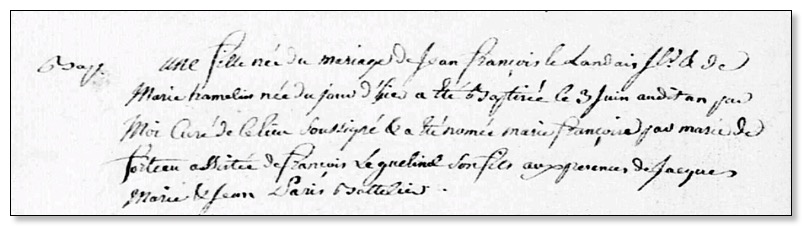 Bap. une fille née du mariage de Jean françois le Landais & de
Marie hamelin née du jour d'hier a été Baptisée le 3 Juin audit an par
Moi Curé de ce lieu soussigné & a été nomée marie françoise par marie de
assistée de francois son fils aux presences de Jacques
Marie & Jean Paris